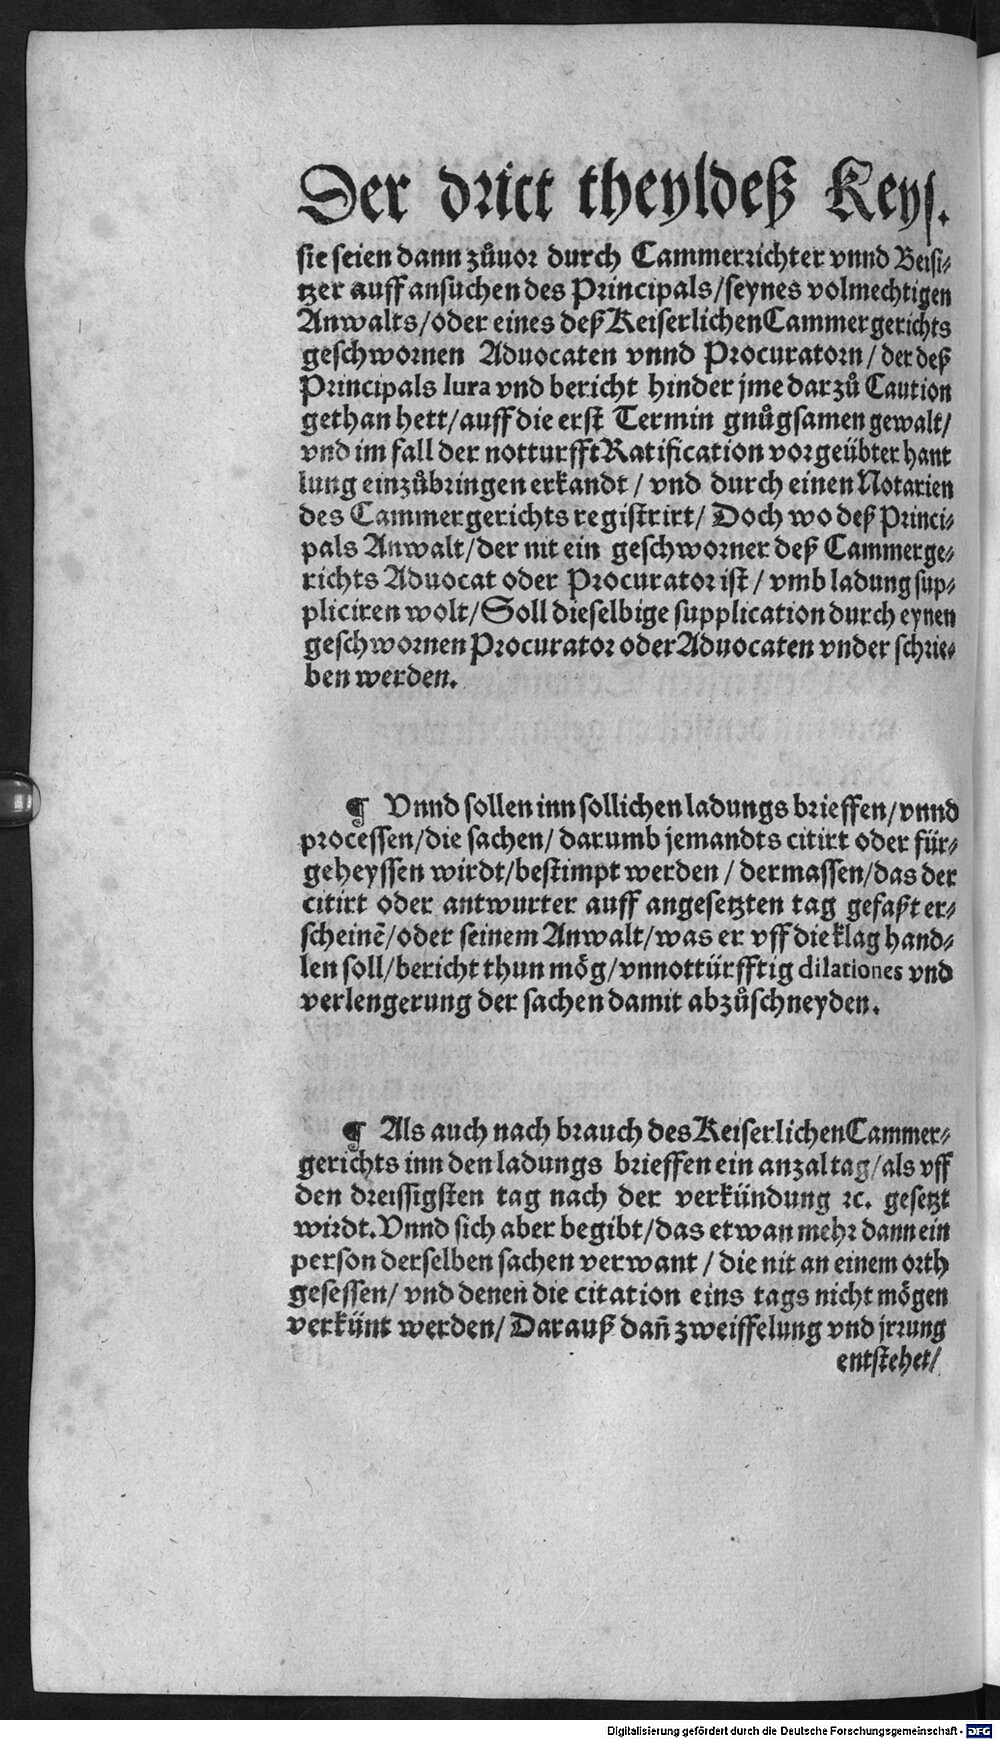 Der dritt theyldeß Keys.
sie seien dann zůuor durch Cammerrichter vnnd Beisi-
tzer auff ansuchen des Principals/seynes volmechtigen
Anwalts/oder eines deß Keiserlichen Cammergerichts
geschwornen Aduocaten vnnd Procuratorn/der deß
Principals Iura vnd bericht hinder jme darzů Caution
gethan hett/auff die erst Termin gnůgsamen gewalt/
vnd im fall der notturfft Ratification vorgeübter hant
lung einzůbringen erkandt/vnd durch einen Notarien
des Cammergerichts registrirt/Doch wo deß Princi-
pals Anwalt/der nit ein geschworner deß Cammerge-
richts Aduocat oder Procurator ist/vmb ladung sup-
pliciren wolt/Soll dieselbige supplication durch eynen
geschwornen Procurator oder Aduocaten vnder schrie-
ben werden.
¶ Vnnd sollen inn sollichen ladungs brieffen/vnnd
processen/die sachen/darumb jemandts citirt oder für-
geheyssen wirdt/bestimpt werden/dermassen/das der
citirt oder antwurter auff angesetzten tag gefaßt er-
scheinē/oder seinem Anwalt/was er vff die klag hand-
len soll/bericht thun mög/vnnottürfftig dilationes vnd
verlengerung der sachen damit abzůschneyden.
¶ Als auch nach brauch des Keiserlichen Cammer-
gerichts inn den ladungs brieffen ein anzal tag/als vff
den dreissigsten tag nach der verkündung ꝛc. gesetzt
wirdt. Vnnd sich aber begibt/das etwan mehr dann ein
person derselben sachen verwant/die nit an einem orth
gesessen/vnd denen die citation eins tags nicht mögen
verkünt werden/Darauß dañ zweiffelung vnd jrrung
entstehet/
Digitalisierung gefördert durch die Deutsche Forschungsgemeinschaft - DFG